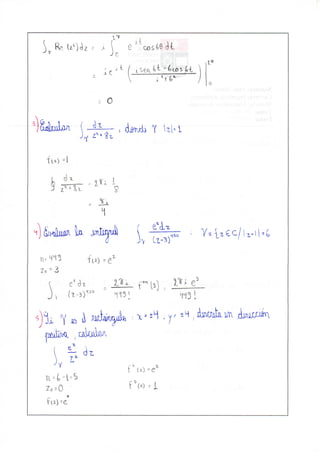 ∫γ Re(z²)dz = i ∫ e^{it} cos6θ dt
= ie^{it} ( i sen 6t - 6cos 6t / i²+6² ) |
= 0
3) Calcular ∫γ dz / z²+8z , donde γ |z|=1
f(z) = 1
∮ dz / z²+8z = 2πi 1/8
= πi / 4
4) Evaluar la integral ∫γ e^z dz / (z-3) γ = {z∈C/|z+1|=6
n = 449 f(z) = e^z
z₀ = 3
∫γ e^z dz / (z-3) = 2πi / 449! f (3) = 2πi e³ / 449!
5) Si γ es el rectángulo x = ±4, y = ±4, descrita en dirección
positiva, calcular
∫γ e^z / z⁶ dz
n = 6-1 = 5 f⁵(z) = e^z
z₀ = 0 f⁵(0) = 1
f(z) = e^z